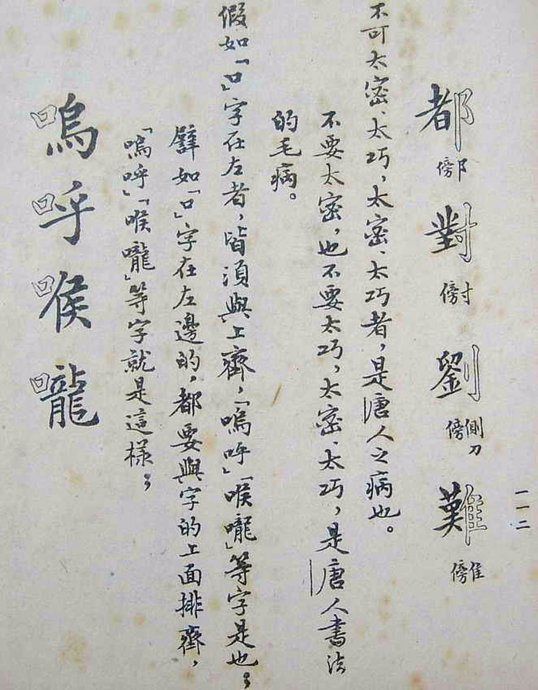 一一二
都阝傍 對寸傍 劉側刀傍 難隹傍
不可太密、太巧,太密、太巧者,是唐人之病也。
不要太密,也不要太巧,太密、太巧,是唐人書法
的毛病。
假如「口」字在左者,皆須與上齊,「嗚呼」「喉嚨」等字是也;
譬如「口」字在左邊的,都要與字的上面排齊,
「嗚呼」「喉嚨」等字就是這樣;
嗚呼喉嚨